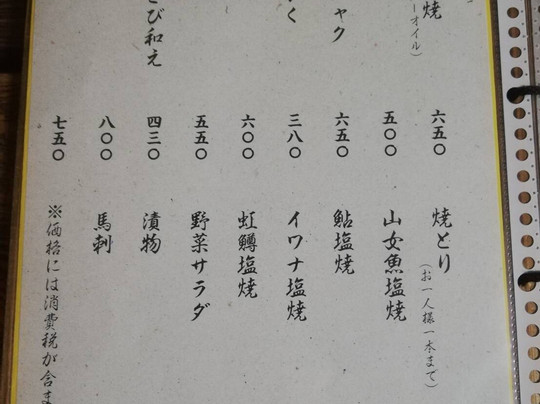 焼
ーオイル)
ャク
く
び和え
六五〇
五〇〇
六五〇
三八〇
六〇〇
五五〇
四三〇
八〇〇
七五〇
焼とり
(お一人様一本まで)
山女魚塩焼
鮎塩焼
イワナ塩焼
虹鱒塩焼
野菜サラダ
漬物
馬刺
※価格には消費税が含ま